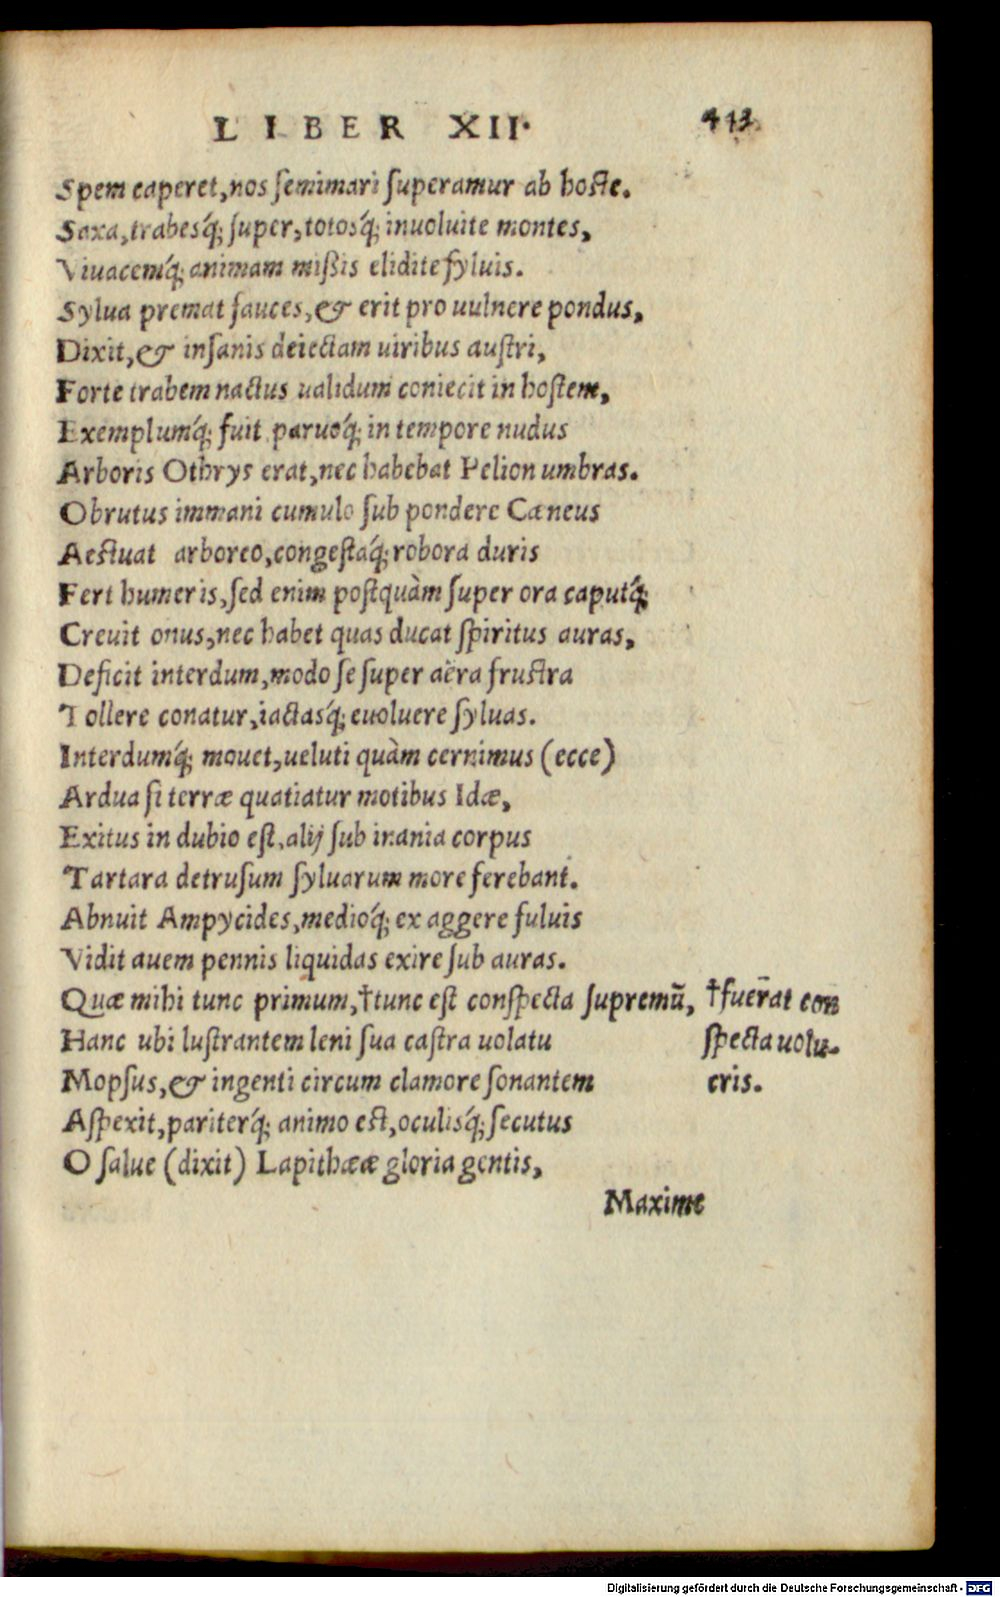 LIBER XII. 413
Spem caperet, nos semimari superamur ab hoste.
Saxa, trabesq́; super, totosq́; inuoluite montes,
Viuacemq́; animam mißis elidite syluis.
Sylua premat fauces, & erit pro uulnere pondus,
Dixit, & insanis deiectam uiribus austri,
Forte trabem nactus ualidum coniecit in hostem,
Exemplumq́; fuit paruoq́; in tempore nudus
Arboris Othrys erat, nec habebat Pelion umbras.
Obrutus immani cumulo sub pondere Cæneus
Aestuat arboreo, congestaq́; robora duris
Fert humeris, sed enim postquàm super ora caputq́;
Creuit onus, nec habet quas ducat spiritus auras,
Deficit interdum, modo se super aëra frustra
Tollere conatur, iactasq́; euoluere syluas.
Interdumq́; mouet, ueluti quàm cernimus (ecce)
Ardua si terræ quatiatur motibus Idæ,
Exitus in dubio est, alij sub inania corpus
Tartara detrusum syluarum more ferebant.
Abnuit Ampycides, medioq́; ex aggere fuluis
Vidit auem pennis liquidas exire sub auras.
Quæ mihi tunc primum, †tunc est conspecta supremū,
Hanc ubi lustrantem leni sua castra uolatu
Mopsus, & ingenti circum clamore sonantem
Aspexit, pariterq́; animo est, oculisq́; secutus
O salue (dixit) Lapithææ gloria gentis,
Maxime
†fuerat con
specta uolu-
cris.
Digitalisierung gefördert durch die Deutsche Forschungsgemeinschaft - DFG